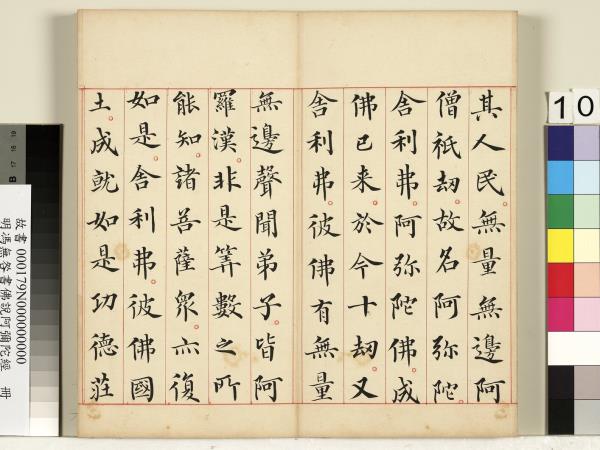 其人民。無量無邊阿
僧祇劫。故名阿弥陀。
舍利弗。阿弥陀佛。成
佛已来。於今十劫。又
舍利弗。彼佛有無量
無邊聲聞弟子。皆阿
羅漢。非是筭數之所
能知。諸菩薩眾。亦復
如是。舍利弗。彼佛國
土。成就如是功德莊
10
B
故書 000179N000000000
明馮無咎書佛說阿彌陀經 冊